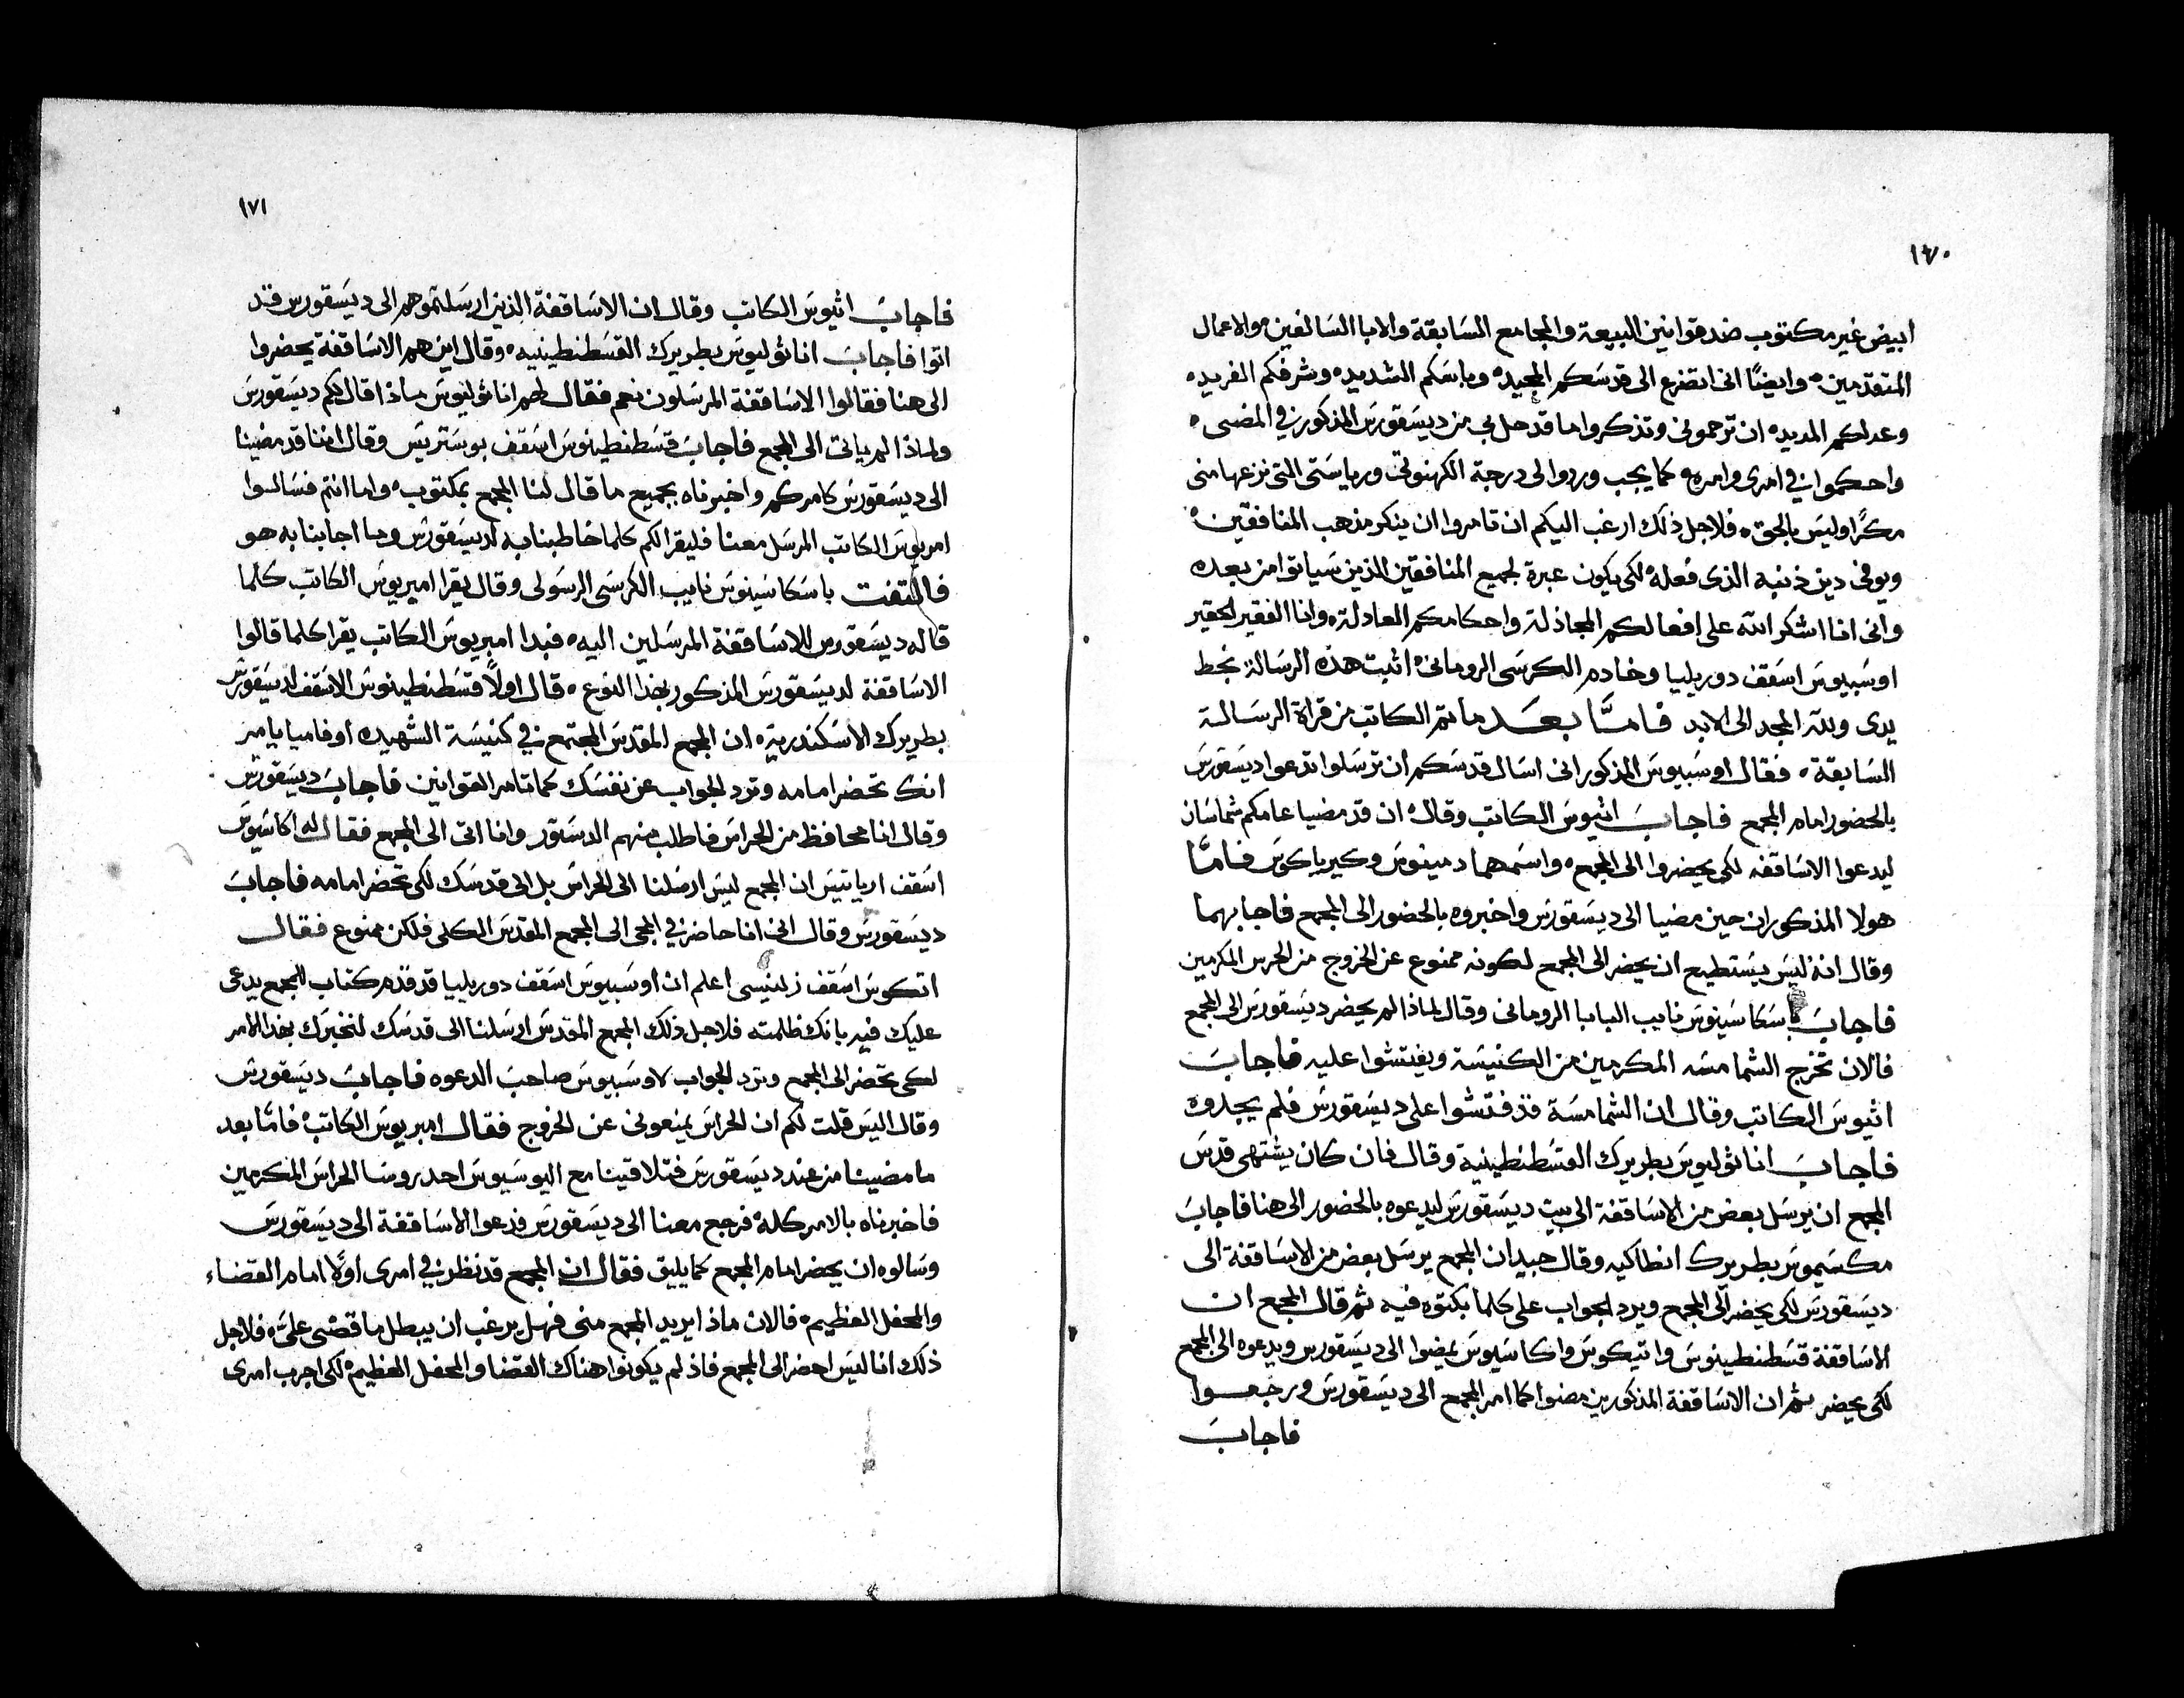 ١٧٠
ابيض غير مكتوب ضد قوانين البيعة والمجامع السابقة والابا السالفين والاعمال
المتقدمين وايضًا اني اتضرع الى قدسكم المجيده وباسكم الشديده وشرفكم الفريده
وعدلكم المديده ان ترحموني وتذكروا ما قد حل بي من ديسقورس المذكور في المضى
واحكموا في امرى وامره كما يجب وردوا لى درجة الكهنوتي ورياستى التى نزعها منى
مكرًا وليس بالحق فلاجل ذلك ارغب اليكم ان تامروا ان ينكر مذهب المنافقين
ويوفى دين ذنبه الذى فعله لكى يكون عبرة لجميع المنافقين الذين سياتوا من بعده
وانى انا اشكر الله على افعالكم الجاذلة واحكامكم العادلة وانا الفقير الحقير
اوسبيوس اسقف دوريليا وخادم الكرسى الرومانى اثبت هذه الرسالة بخط
يدى ولله المجد الى الابد فامّا بعد ما تم الكاتب من قراة الرسالة
السابقة فقال اوسبيوس المذكور انى اسال قدسكم ان ترسلوا تدعوا ديسقورس
بالحضور امام المجمع فاجاب اثيوس الكاتب وقال ان قد مضيا عامكم شماسان
ليدعوا الاساقفه لكى يحضروا الى المجمع واسمهما دمينوس وكيرياكوس فامّا
هولا المذكوران حين مضيا الى ديسقورس واخبروه بالحضور الى المجمع فاجابهما
وقال انه ليس يستطيع ان يحضر الى المجمع لكونه ممنوع عن الخروج من الحرس المكرمين
فاجاب باسكاسينوس نايب البابا الرومانى وقال لماذا لم يحضر ديسقورس الى المجمع
فالان تخرج الشمامسه المكرمين من الكنيسة ويفتشوا عليه فاجاب
اثيوس الكاتب وقال ان الشمامسة قد فتشوا على ديسقورس فلم يجدوه
فاجاب اناثوليوس بطريرك القسطنطينية وقال فان كان يشتهى قدس
المجمع ان يرسل بعض من الاساقفة الى بيت ديسقورس ليدعوه بالحضور الى هنا فاجاب
مكسيموس بطريرك انطاكيه وقال جيد ان المجمع يرسل بعض من الاساقفة الى
ديسقورس لكى يحضر الى المجمع ويرد الجواب على كلما بكتوه فيه ثم قال المجمع ان
الاساقفة قسطنطينوس واتيكوس واكاسيوس يمضوا الى ديسقورس ويدعوه الى المجمع
لكى يحضر ثم ان الاساقفة المذكورين مضوا كما امر المجمع الى ديسقورس ورجعوا
فاجاب
١٧١
فاجاب اثيوس الكاتب وقال ان الاساقفة الذين ارسلتموهم الى ديسقورس قد
اتوا فاجاب اناثوليوس بطريرك القسطنطينيه وقال اين هم الاساقفة يحضروا
الى هنا فقالوا الاساقفة المرسلون نعم فقال لهم اناثوليوس ماذا قال لكم ديسقورس
ولماذا لم ياتى الى المجمع فاجاب قسطنطينوس اسقف بوستريس وقال اننا قد مضينا
الى ديسقورس كامركم واخبرناه بجميع ما قال لنا المجمع بمكتوب واما انتم فسالوا
امريوس الكاتب المرسل معنا فليقرا لكم كلما خاطبنا به لديسقورس وما اجابنا به هو
فالتفت باسكاسينوس نايب الكرسى الرسولى وقال يقرا اميريوس الكاتب كلما
قاله ديسقورس للاساقفة المرسلين اليه فبدا امبريوس الكاتب يقرا كلما قالوا
الاساقفة لديسقورس المذكور بهذا النوع قال اولاً قسطنطينوس الاسقف لديسقورس
بطريرك الاسكندرية ان المجمع المقدس المجتمع في كنيسة الشهيده اوفاميا يامر
انك تحضر امامه وترد الجواب عن نفسك كما تامر القوانين فاجاب ديسقورس
وقال انا محافظ من الحراس فاطلب منهم الدستور وانا اتى الى المجمع فقال له اكاسيوس
اسقف ارياتيس ان المجمع ليس ارسلنا الى الحراس بل الى قدسك لكى تحضر امامه فاجاب
ديسقورس وقال انى انا حاضر في المجى الى المجمع المقدس الكلى فلكن ممنوع فقال
اتكوس اسقف زلنيسى اعلم ان اوسبيوس اسقف دوريليا قد قدم كتاب للمجمع يدعى
عليك فيه بانك ظلمته فلاجل ذلك المجمع المقدس ارسلنا الى قدسك لنخبرك بهذا الامر
لكى تحضر الى المجمع وترد الجواب لاوسبيوس صاحب الدعوه فاجاب ديسقورس
وقال اليس قلت لكم ان الحراس يمنعونى عن الخروج فقال امبريوس الكاتب فامّا بعد
ما مضينا من عند ديسقورس فتلاقينا مع اليوسيوس احد روسا الحراس المكرمين
فاخبرناه بالامر كله فرجع معنا الى ديسقورس فدعوا الاساقفة الى ديسقورس
وسالوه ان يحضر امام المجمع كما يليق فقال ان المجمع قد نظر في امرى اولًا امام القضاء
والمحفل العظيم فالان ماذا يريد المجمع منى فهل يرغب ان يبطل ما قضى علىّ فلاجل
ذلك انا ليس احضر الى المجمع فاذ لم يكونوا هناك القضا والمحفل العظيم لكى اجرب امرى